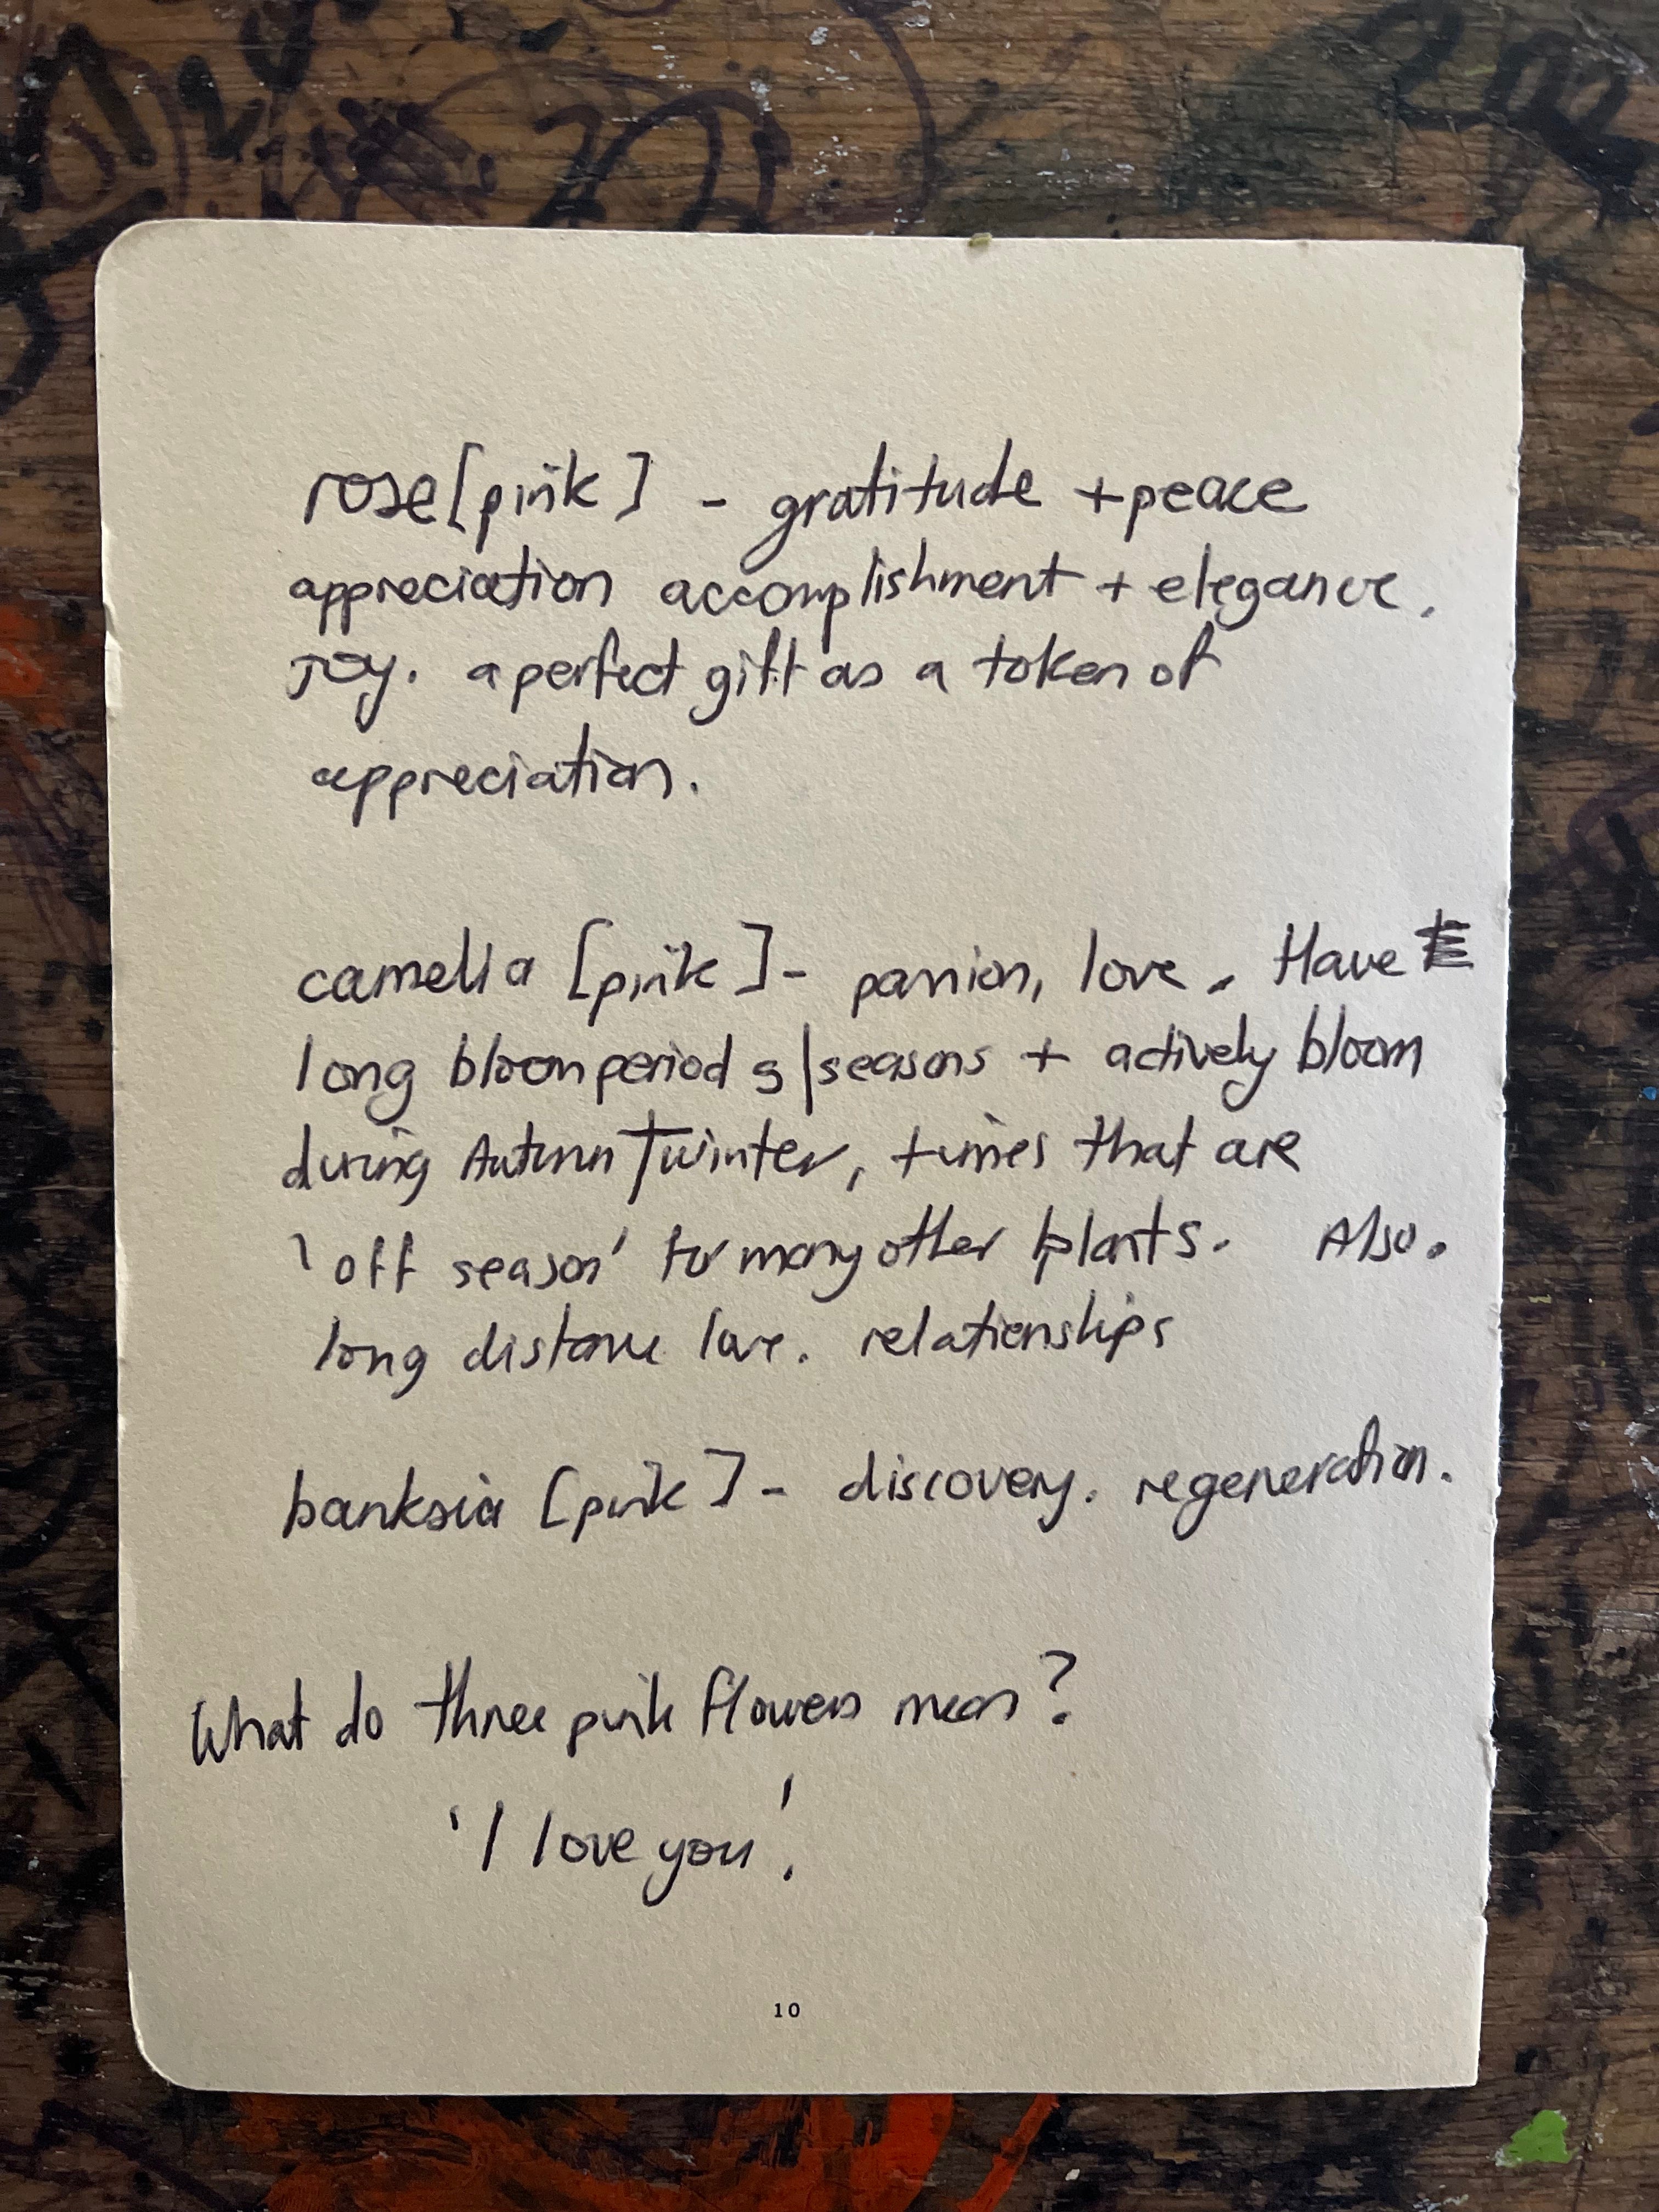 rose [pink] - gratitude + peace
appreciation accomplishment + elegance.
Joy. a perfect gift as a token of
appreciation.
camellia [pink] - passion, love. Have
long bloom periods | seasons + actively bloom
during Autumn + winter, times that are
'off season' for many other plants. Also.
long distance love. relationships
banksia [pink] - discovery. regeneration.
What do three pink flowers mean?
'I love you'!
10